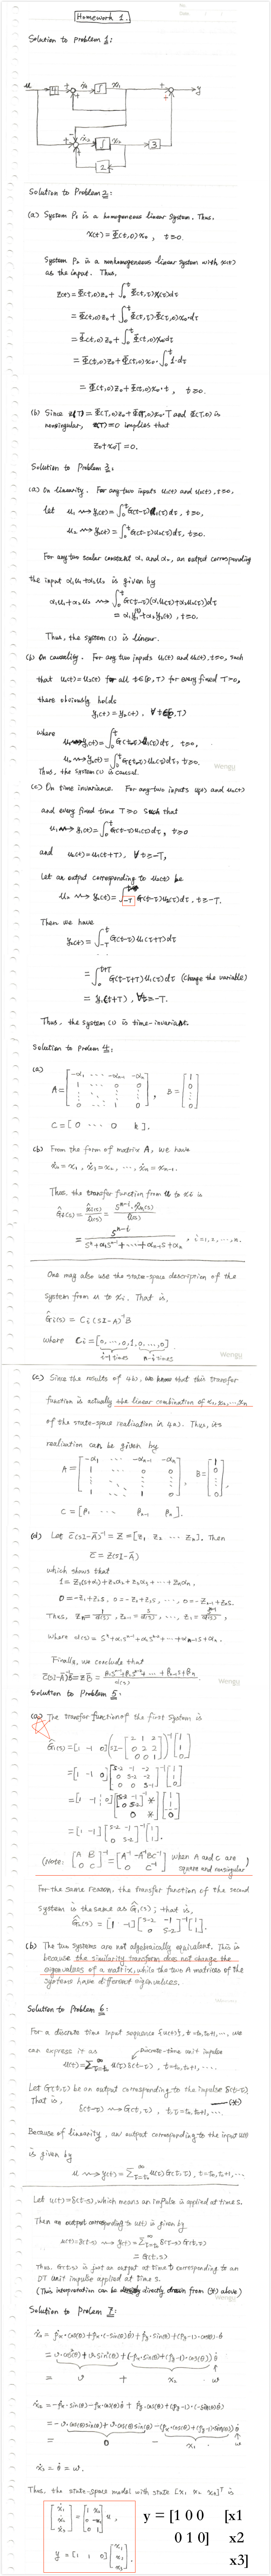 Homework 1.
Solution to problem 1:
u
4
+
ẋ₁
∫
x₁
+
y
+
+
-
ẋ₂
∫
x₂
3
+
2
Solution to Problem 2:
(a) System P₁ is a homogeneous linear system. Thus,
x(t) = Φ(t,0)x₀, t≥0.
System P₂ is a nonhomogeneous linear system with x(t)
as the input. Thus,
z(t) = Φ(t,0)z₀ + ∫₀ᵗ Φ(t,τ)x(τ)dτ
= Φ(t,0)z₀ + ∫₀ᵗ Φ(t,τ)·Φ(τ,0)x₀·dτ
= Φ(t,0)z₀ + ∫₀ᵗ Φ(t,0)x₀dτ
= Φ(t,0)z₀ + Φ(t,0)x₀·∫₀ᵗ 1·dτ
= Φ(t,0)z₀ + Φ(t,0)x₀·t, t≥0.
(b) Since z(T) = Φ(T,0)z₀ + Φ(T,0)x₀·T and Φ(T,0) is
nonsingular, z(T)=0 implies that
z₀+x₀T=0.
Solution to Problem 3:
(a) On linearity. For any two inputs u₁(t) and u₂(t), t≥0,
let u₁ ⇝ y₁(t) = ∫₀ᵗ G(t-τ)u₁(τ)dτ, t≥0,
u₂ ⇝ y₂(t) = ∫₀ᵗ G(t-τ)u₂(τ)dτ, t≥0.
For any two scalar constant α₁ and α₂, an output corresponding
the input α₁u₁+α₂u₂ is given by
α₁u₁+α₂u₂ ⇝ ∫₀ᵗ G(t-τ)(α₁u₁(τ)+α₂u₂(τ))dτ
= α₁y₁(t)+α₂y₂(t), t≥0.
Thus, the system (1) is linear.
(b) On causality. For any two inputs u₁(t) and u₂(t), t≥0, such
that u₁(t)=u₂(t) for all t∈[0,T) for every fixed T>0,
there obviously holds
y₁(t)=y₂(t), ∀t∈[0,T)
where u₁ ⇝ y₁(t) = ∫₀ᵗ G(t-τ)u₁(τ)dτ, t≥0,
u₂ ⇝ y₂(t) = ∫₀ᵗ G(t-τ)u₂(τ)dτ, t≥0.
Thus, the system (1) is causal.
Wengyi
(c) On time invariance. For any two inputs u₁(t) and u₂(t)
and every fixed time T≥0 such that
u₁ ⇝ y₁(t) = ∫₀ᵗ G(t-τ)u₁(τ)dτ, t≥0
and u₂(t)=u₁(t+T), ∀t≥-T,
Let an output corresponding to u₂(t) be
u₂ ⇝ y₂(t) = ∫₋ᴛᵗ G(t-τ)u₂(τ)dτ, t≥-T.
Then we have
y₂(t) = ∫₋ᴛᵗ G(t-τ)u₁(τ+T)dτ
= ∫₀ᵗ⁺ᵀ G(t-τ+T)u₁(τ)dτ (change the variable)
= y₁(t+T), ∀t≥-T.
Thus, the system (1) is time-invariant.
Solution to Prolem 4:
(a)
A = [-α₁ ... -αₙ₋₁ -αₙ; 1 ... 0 0; ⋮ ⋮ ⋮; 0 ... 1 0], B = [1; 0; ⋮; 0]
C = [0 ... 0 k].
(b) From the form of matrix A, we have
ẋ₂ = x₁, ẋ₃ = x₂, ..., ẋₙ = xₙ₋₁.
Thus, the transfer function from u to xᵢ is
Ĝᵢ(s) = x̂ᵢ(s)/û(s) = sⁿ⁻ⁱ·x̂ₙ(s)/û(s)
= sⁿ⁻ⁱ/(sⁿ+α₁sⁿ⁻¹+...+αₙ₋₁s+αₙ), i=1,2,...,n.
One may also use the state-space description of the
system from u to xᵢ. That is,
Ĝᵢ(s) = Cᵢ(sI-A)⁻¹B
where Cᵢ = [0,...,0,1,0,...,0]
i-1 times n-i times
Wengyi
(c) Since the results of 4b), we know that this transfer
function is actually the linear combination of x₁,x₂,...,xₙ
of the state-space realization in 4a). Thus, its
realization can be given by
A = [-α₁ ... -αₙ₋₁ -αₙ; 1 ... 0 0; ⋮ ⋮ ⋮; 0 ... 1 0], B = [1; 0; ⋮; 0],
C = [β₁ ... βₙ₋₁ βₙ].
(d) Let C̄(sI-Ā)⁻¹ = Z = [z₁ z₂ ... zₙ]. Then
C̄ = Z(sI-Ā)
which shows that
1 = z₁(s+α₁)+z₂α₂+z₃α₃+...+zₙαₙ,
0 = -z₁+z₂s, 0=-z₂+z₃s, ..., 0=-zₙ₋₁+zₙs.
Thus, zₙ = 1/d(s), zₙ₋₁ = s/d(s), ..., z₁ = sⁿ⁻¹/d(s),
where d(s) = sⁿ+α₁sⁿ⁻¹+α₂sⁿ⁻²+...+αₙ₋₁s+αₙ.
Finally, we conclude that
C̄(sI-Ā)⁻¹B̄ = ZB̄ = (β₁sⁿ⁻¹+β₂sⁿ⁻²+...+βₙ₋₁s+βₙ)/d(s).
Solution to Problem 5:
(a) The transfer function of the first system is
Ĝ₁(s) = [1 -1 0](sI-[2 1 2; 0 2 2; 0 0 1])⁻¹[1; 1; 0]
= [1 -1 0][s-2 -1 -2; 0 s-2 -2; 0 0 s-1]⁻¹[1; 1; 0]
= [1 -1 0][[s-2 -1; 0 s-2]⁻¹ *; 0 *][1; 1; 0]
= [1 -1][s-2 -1; 0 s-2]⁻¹[1; 1].
(Note: [A B; 0 C]⁻¹ = [A⁻¹ -A⁻¹BC⁻¹; 0 C⁻¹] when A and C are
square and nonsingular)
For the same reason, the transfer function of the second
system is the same as Ĝ₁(s), that is,
Ĝ₂(s) = [1 -1][s-2 -1; 0 s-2]⁻¹[1; 1].
(b) The two systems are not algebraically equivalent. This is
because the similarity transform does not change the
eigenvalues of a matrix, while the two A matrices of the
systems have different eigenvalues.
Solution to Problem 6:
For a discrete time input sequence {u(t)}, t=t₀,t₀+1,..., we
can express it as
discrete-time unit impulse
u(t) = Σ u(τ)δ(t-τ), t=t₀,t₀+1,....
Let G(t,τ) be an output corresponding to the impulse δ(t-τ)
That is,
δ(t-τ) ⇝ G(t,τ), t,τ=t₀,t₀+1,.... (*)
Because of linearity, an output corresponding to the input u(t)
is given by
u ⇝ y(t) = Σ u(τ)G(t,τ), t=t₀,t₀+1,...
Let u(t)=δ(t-s), which means an impulse is applied at time s.
Then an output corresponding to u(t) is given by
u(t)=δ(t-s) ⇝ y(t) = Σ δ(τ-s)G(t,τ)
= G(t,s)
Thus, G(t,s) is just an output at time t corresponding to an
DT unit impulse applied at time s.
(This interpretation can be directly drawn from (*) above)
Solution to Prolem 7:
ẋ₂ = ṗₓ·cos(θ)+pₓ·(-sin(θ))θ̇+ṗᵧ·sin(θ)+(pᵧ-1)·cos(θ)·θ̇
= v·cos²(θ)+v·sin²(θ)+(-pₓ·sin(θ)+(pᵧ-1)·cos(θ))θ̇
= v + x₂ · w
ẋ₂ = -ṗₓ·sin(θ)-pₓ·cos(θ)θ̇+ṗᵧ·cos(θ)+(pᵧ-1)·(-sin(θ))θ̇
= -v·cos(θ)sin(θ)+v·cos(θ)sin(θ)-(pₓ·cos(θ)+(pᵧ-1)sin(θ))θ̇
= 0 - x₁ · w
ẋ₃ = θ̇ = w.
Thus, the state-space model with state [x₁ x₂ x₃]ᵀ is
[ẋ₁; ẋ₂; ẋ₃] = [1 x₂; 0 -x₁; 0 1]u,
y = [1 1 0][x₁; x₂; x₃].
y = [1 0 0 [x1
0 1 0] x2
x3]